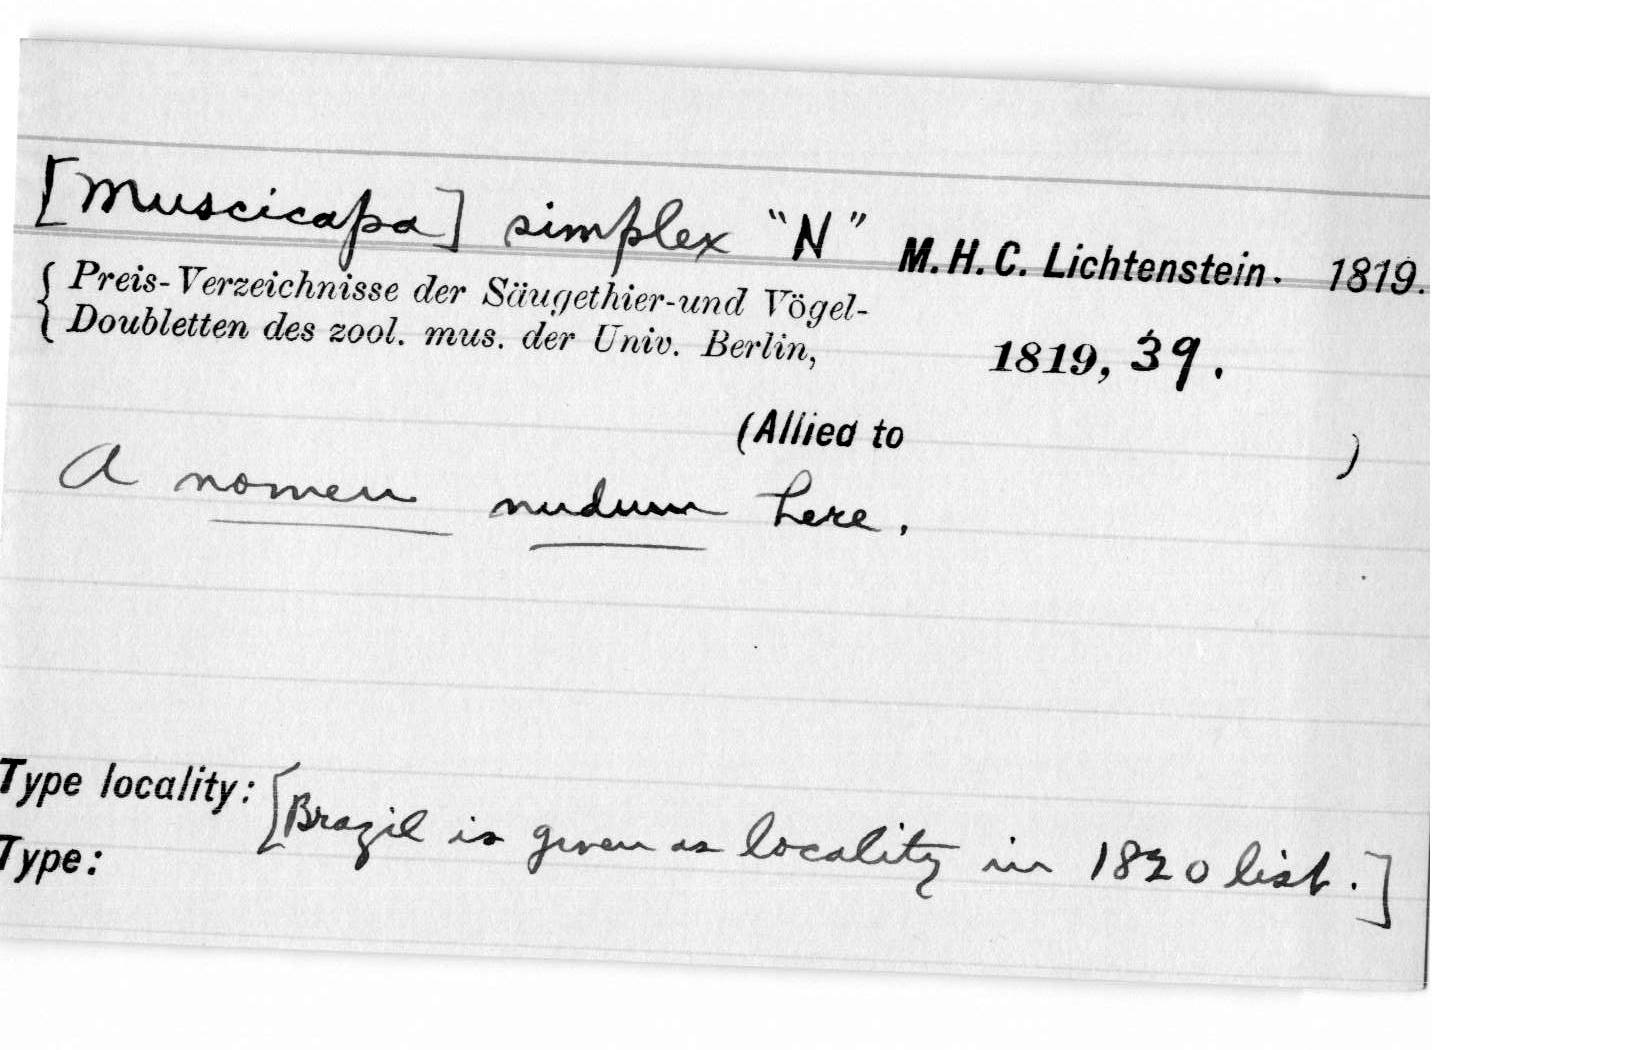 [Muscicapa] simplex "N" M. H. C. Lichtenstein. 1819.
{ Preis-Verzeichnisse der Säugethier-und Vögel-
Doubletten des zool. mus. der Univ. Berlin, 1819, 39.
(Allied to )
A nomen nudum here.
Type locality: [Brazil is given as locality in 1820 list.]
Type: